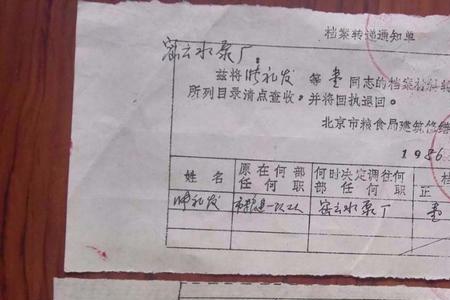 档案转递通知单
密云水泵厂：
兹将 礼发 等 壹 同志的档案材料转
所列目录清点查收，并将回执退回。
北京市粮食局建筑修缮
1986
姓名 原在何部任何职 何时决定调往何部任何职 档
正
礼发 市粮 一 工人 密云水泵厂 壹